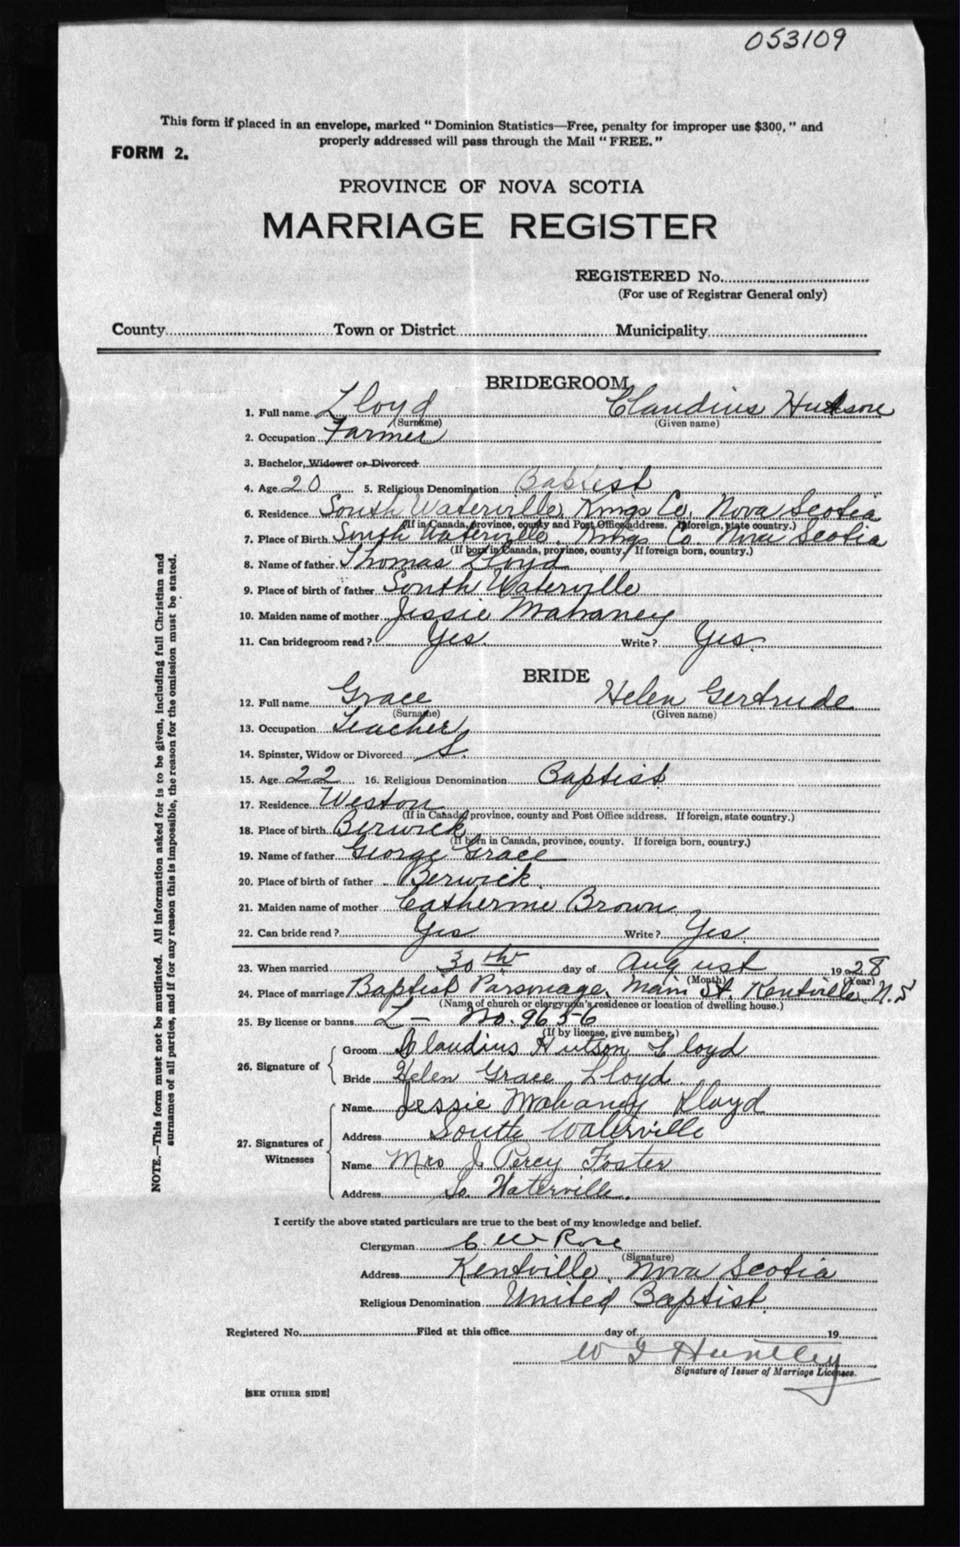 053109
This form if placed in an envelope, marked "Dominion Statistics—Free, penalty for improper use $300," and
properly addressed will pass through the Mail "FREE."
FORM 2.
PROVINCE OF NOVA SCOTIA
MARRIAGE REGISTER
REGISTERED No.
(For use of Registrar General only)
County Town or District Municipality
BRIDEGROOM
1. Full name Lloyd Claudius Hutson
(Surname) (Given name)
2. Occupation Farmer
3. Bachelor, Widower or Divorced
4. Age 20 5. Religious Denomination Baptist
6. Residence South Waterville, Kings Co, Nova Scotia
(If in Canada, province, county and Post Office address. If foreign, state country.)
7. Place of Birth South Waterville, Kings Co. Nova Scotia
(If born in Canada, province, county. If foreign born, country.)
8. Name of father Thomas Lloyd
9. Place of birth of father South Waterville
10. Maiden name of mother Jessie Mahaney
11. Can bridegroom read? Yes. Write? Yes.
BRIDE
12. Full name Grace Helen Gertrude
(Surname) (Given name)
13. Occupation Teacher
14. Spinster, Widow or Divorced S.
15. Age 22 16. Religious Denomination Baptist
17. Residence Weston
(If in Canada, province, county and Post Office address. If foreign, state country.)
18. Place of birth Berwick
(If born in Canada, province, county. If foreign born, country.)
19. Name of father George Grace
20. Place of birth of father Berwick.
21. Maiden name of mother Catherine Brown
22. Can bride read? Yes Write? Yes.
23. When married 30th day of August 1928
(Month) (Year)
24. Place of marriage Baptist Parsonage, Main St. Kentville, N.S
(Name of church or clergyman's residence or location of dwelling house.)
25. By license or banns L — No. 9656
(If by license, give number.)
26. Signature of
Groom Claudius Hutson Lloyd
Bride Helen Grace Lloyd.
27. Signatures of Witnesses
Name Jessie Mahaney Lloyd
Address South Waterville
Name Mrs J. Percy Foster
Address So. Waterville.
I certify the above stated particulars are true to the best of my knowledge and belief.
Clergyman C. W. Rose
(Signature)
Address Kentville, Nova Scotia
Religious Denomination United Baptist.
Registered No. Filed at this office day of 19
W J Huntley
Signature of Issuer of Marriage Licenses.
[SEE OTHER SIDE]
NOTE.—This form must not be mutilated. All information asked for is to be given, including full Christian and
surnames of all parties, and if for any reason this is impossible, the reason for the omission must be stated.